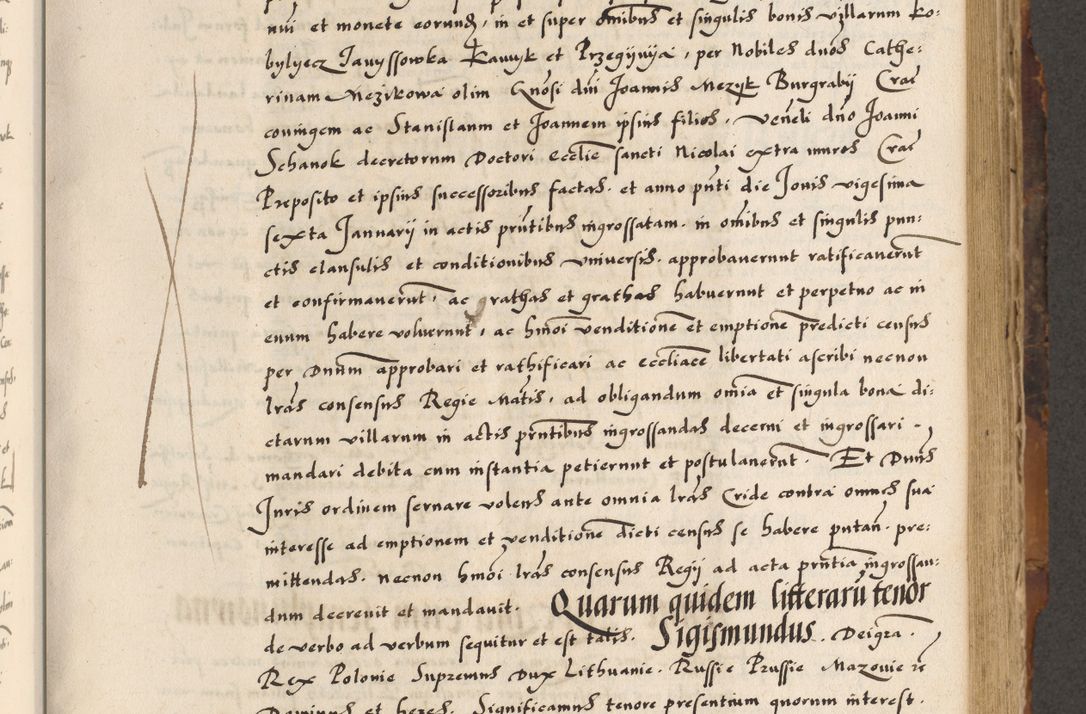 num et monete eorund, in et super omibus et singulis bonis villarum Ko:
bylyecz Jawyssowka Kawyk et Przegynya, per Nobiles dnos Cathe:
rinam Mezikowa olim Gnosi dni Joannis Mezyk Burgrabij Crac
coniugem ac Stanislaum et Joannem ipsius filios, Veneli dno Joanni
Schanok decretorum Doctori Ecclie sancti Nicolai extra muros Crac
Preposito et ipsius successoribus factas, et anno pnti die Jovis vigesima
sexta Januarij in actis pntibus ingrossatam, in omibus et singulis pun:
ctis clausulis et conditionibus universis, approbaverunt ratificaverunt
et confirmaverunt, ac rathas et grathas habuerunt et perpetuo ac in
evum habere voluerunt, ac hmoi venditione et emptione predicti census
per Dnum approbari et rathificari ac eccliace libertati ascribi necnon
lras consensus Regie Matis, ad obligandum omia et singula bona di:
ctarum villarum in actis pntibus ingrossandas decerni et ingrossari
mandari debita cum instantia petierunt et postulaverunt. Et Duns
Juris ordinem servare volens ante omnia lras Cride contra omnes sua
interesse ad emptionem et venditione dicti census se habere putan. pre:
mittendas, necnon hmoi lras consensus Regij ad acta pntia ingrossan:
dum decrevit et mandavit. Quarum quidem litterarum tenor
de verbo ad verbum sequitur et est talis. Sigismundus. Dei gra.
Rex Polonie Supremus Dux Lithuanie. Russie Prussie Mazovie re
Dominus et heres. Significamus tenore presentium quorum interest.